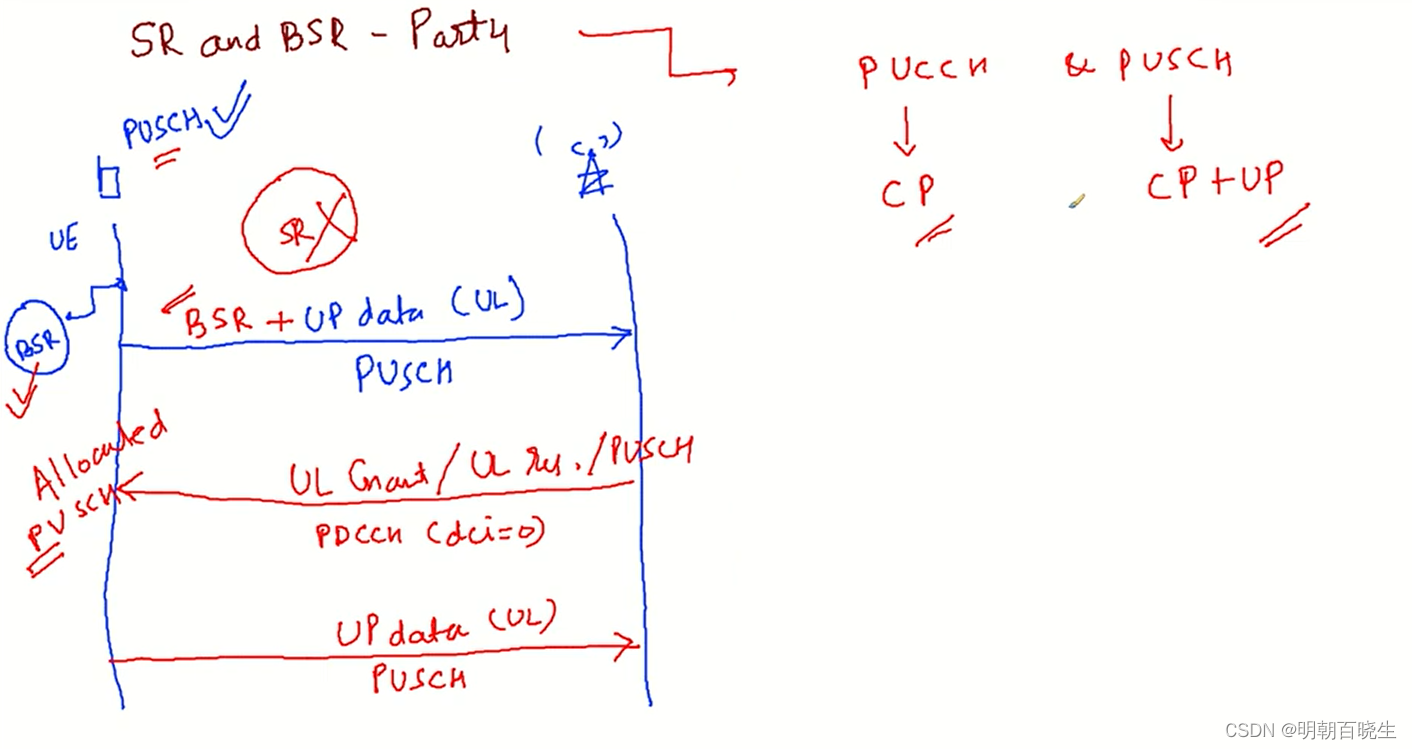 SR and BSR - Part4
PUCCH & PUSCH
CP CP+UP
PUSCH
UE
SR
BSR
BSR + UP data (UL)
PUSCH
Allocated
PUSCH
UL Grant / UL res. / PUSCH
PDCCH (dci=0)
UP data (UL)
PUSCH
CSDN @明朝百晓生